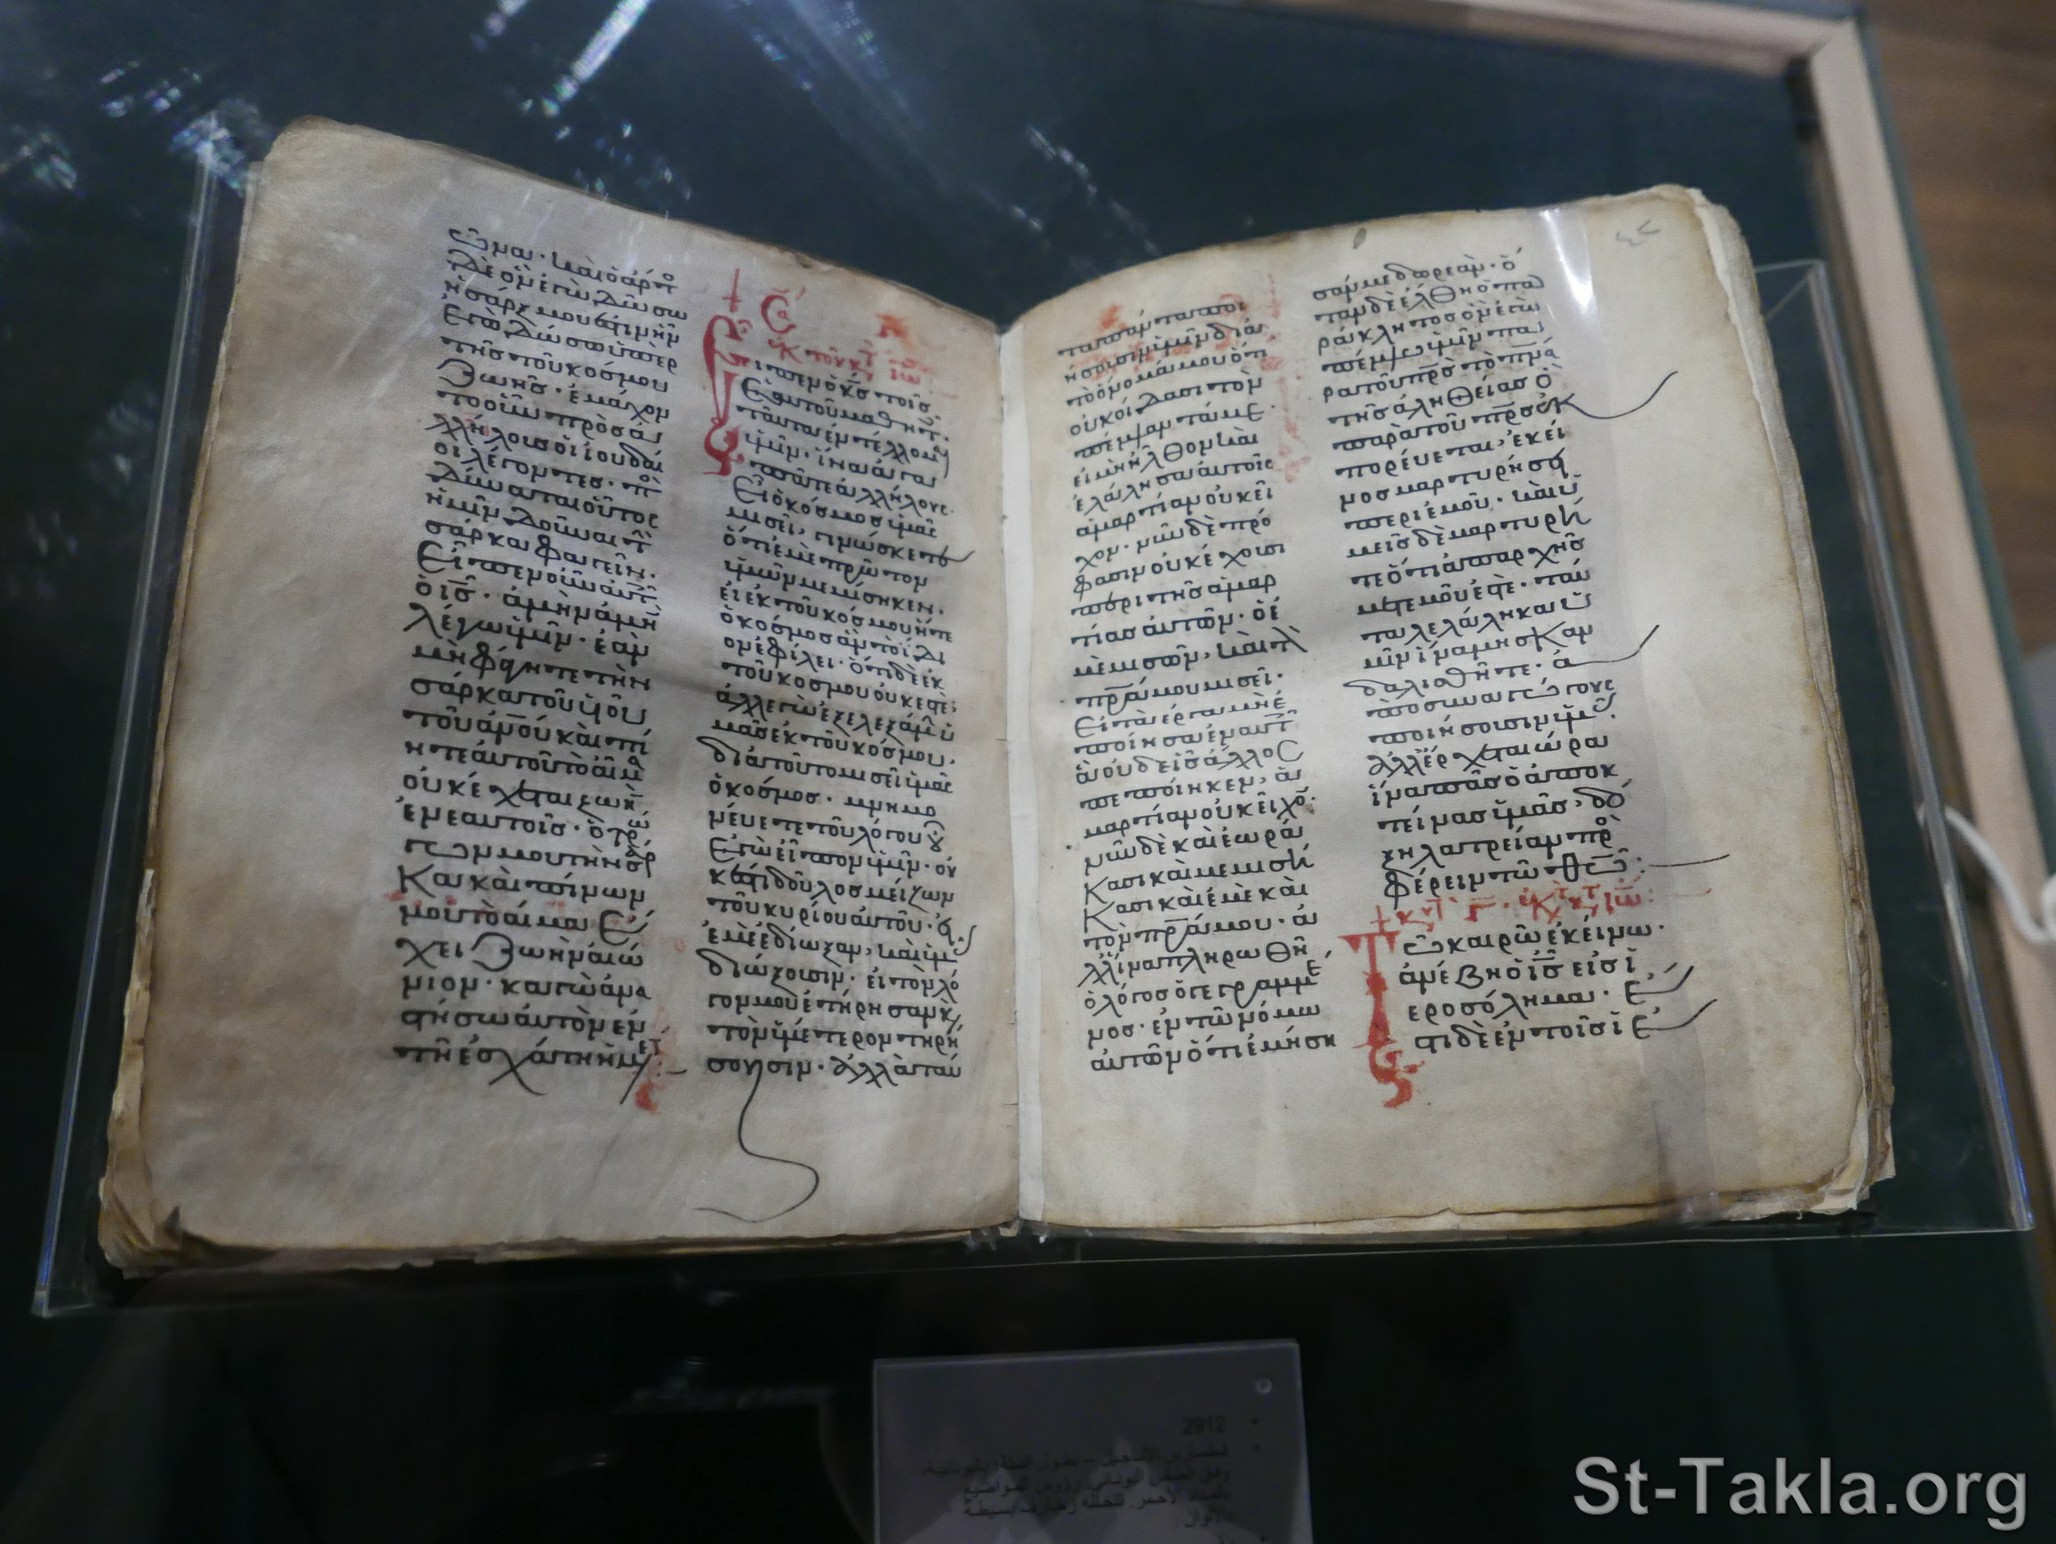 ῶναι· καὶ ὁ ἄρτ
δὲ ὃν ἐγὼ δώσω
ἡ σάρξ μου ἐστὶν ἣν
ἐγὼ δώσω ὑπὲρ
τῆς τοῦ κόσμου
ζωῆς· ἐμάχον
το οὖν πρὸς ἀλ
λήλους οἱ ἰουδαῖ
οι λέγοντες· π
δύναται οὗτος
ἡμῖν δοῦναι τ
σάρκα φαγεῖν·
Εἶπεν οὖν αὐτ
ὁ ις̅· ἀμὴν ἀμὴν
λέγω ὑμῖν· ἐὰν
μὴ φάγητε τὴν
σάρκα τοῦ υἱοῦ
τοῦ ἀνου καὶ πί
ητε αὐτοῦ τὸ αἷμα
οὐκ ἔχεται ζωὴν
ἐν ἑαυτοῖς· ὁ τρώ
γων μου τὴν σάρ
κα καὶ πίνων
μου τὸ αἷμα ἔ
χει ζωὴν αἰώ
νιον· καγὼ ἀνα
στήσω αὐτὸν ἐν
τῇ ἐσχάτῃ ἡμέ
ἐκ τοῦ κτ ιω
Εἶπεν ὁ κς̅ τοῖς
ἑαυτοῦ μαθητ·
ταῦτα ἐντέλλομαι
ὑμῖν· ἵνα ἀγα
πᾶτε ἀλλήλους·
Εἰ ὁ κόσμος ὑμᾶς
μισεῖ, γινώσκετε
ὅτι ἐμὲ πρῶτον
ὑμῶν μεμίσηκεν·
εἰ ἐκ τοῦ κόσμου ἦτε
ὁ κόσμος ἂν τὸ ἴδι
ον ἐφίλει· ὅτι δὲ ἐκ
τοῦ κόσμου οὐκ ἐστέ,
ἀλλ' ἐγὼ ἐξελεξάμην ὑ
μᾶς ἐκ τοῦ κόσμου,
διὰ τοῦτο μισεῖ ὑμᾶς
ὁ κόσμος· μνημο
νεύετε τοῦ λόγου οὗ
Ἐγὼ εἶπον ὑμῖν· οὐ
κ ἔστι δοῦλος μείζων
τοῦ κυρίου αὐτοῦ· εἰ
ἐμὲ ἐδίωξαν, καὶ ὑμᾶς
διώξουσιν· εἰ τὸν λό
γον μου ἐτήρησαν κ
τὸν ὑμέτερον τηρή
σουσιν· ἀλλὰ ταῦ
τα πάντα ποι
ήσουσιν ὑμῖν διὰ
τὸ ὄνομά μου ὅτι
οὐκ οἴδασι τὸν
πέμψαντά με·
εἰ μὴ ἦλθον καὶ
ἐλάλησα αὐτοῖς
ἁμαρτίαν οὐκ εἶ
χον· νῦν δὲ πρό
φασιν οὐκ ἔχουσι
περὶ τῆς ἁμαρ
τίας αὐτῶν· ὁ ἐ
μὲ μισῶν, καὶ τὸν
πρα̅ μου μισεῖ·
Εἰ τὰ ἔργα μὴ ἐ
ποίησα ἐν αὐτοῖς
ἃ οὐδεὶς ἄλλος
πεποίηκεν, ἁ
μαρτίαν οὐκ εἶχον·
νῦν δὲ καὶ ἑωρά
κασι καὶ μεμισή
κασι καὶ ἐμὲ καὶ
τὸν πρα̅ μου· ἀλ
λ' ἵνα πληρωθῇ
ὁ λόγος ὁ γεγραμμέ
νος· ἐν τῷ νόμω
αὐτῶν ὅτι ἐμίση
σάν με δωρεάν· ὅ
ταν δὲ ἔλθη ὁ πα
ράκλητος ὃν ἐγὼ
πέμψω ὑμῖν πα
ρὰ τοῦ πρς̅ τὸ πνα̅
τῆς ἀληθείας ὃ
παρὰ τοῦ πρς̅ ἐκ
πορεύεται, ἐκεῖ
νος μαρτυρήσει
περὶ ἐμοῦ· καὶ ὑ
μεῖς δὲ μαρτυρεῖ
τε ὅτι ἀπ' ἀρχῆς
μετ' ἐμοῦ ἐστέ· ταῦ
τα λελάληκα ὑ
μῖν ἵνα μὴ σκαν
δαλισθῆτε· ἀ
ποσυναγώγους
ποιήσουσιν ὑμᾶς·
ἀλλ' ἔρχεται ὥρα
ἵνα πᾶς ὁ ἀποκ
τείνας ὑμᾶς, δό
ξη λατρείαν προσ
φέρειν τῷ θω̅·
Τῶ καιρῶ ἐκείνω·
ἀνέβη ὁ ις̅ εἰς ἱ
εροσόλημα· ἔ
στι δὲ ἐν τοῖς ἱε
2912
St-Takla.org